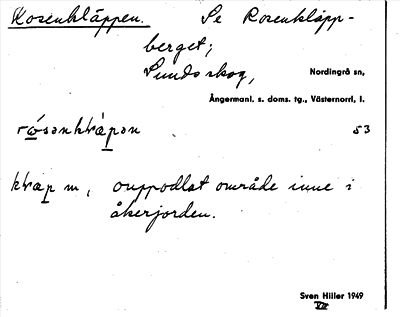 Rosenkläppen. Se Rosenkläpp-
berget;
Sundsskog, Nordingrå sn,
Ångermanl. s. doms. tg., Västernorrl, l.
53
m, ouppodlat område inne i
åkerjorden.
Sven Hiller 1949
VII